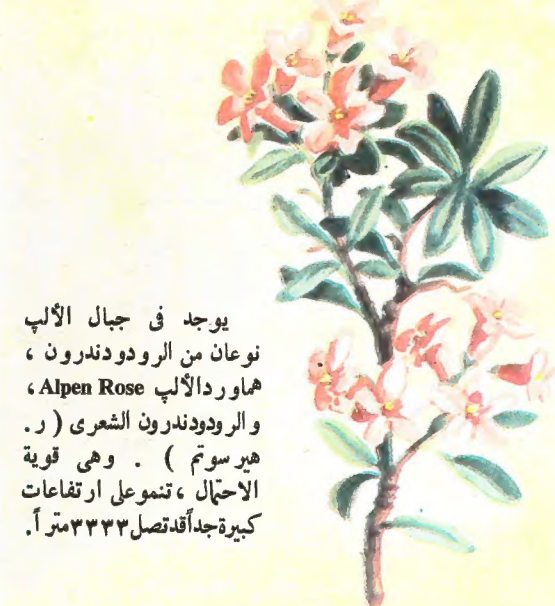 يوجد فى جبال الألپ
نوعان من الرودودندرون ،
هماورد الألپ Alpen Rose ،
والرودودندرون الشعرى ( ر .
هيرسوتم ) . وهى قوية
الاحتمال ، تنمو على ارتفاعات
كبيرة جداً قد تصل ٣٣٣٣ متراً .